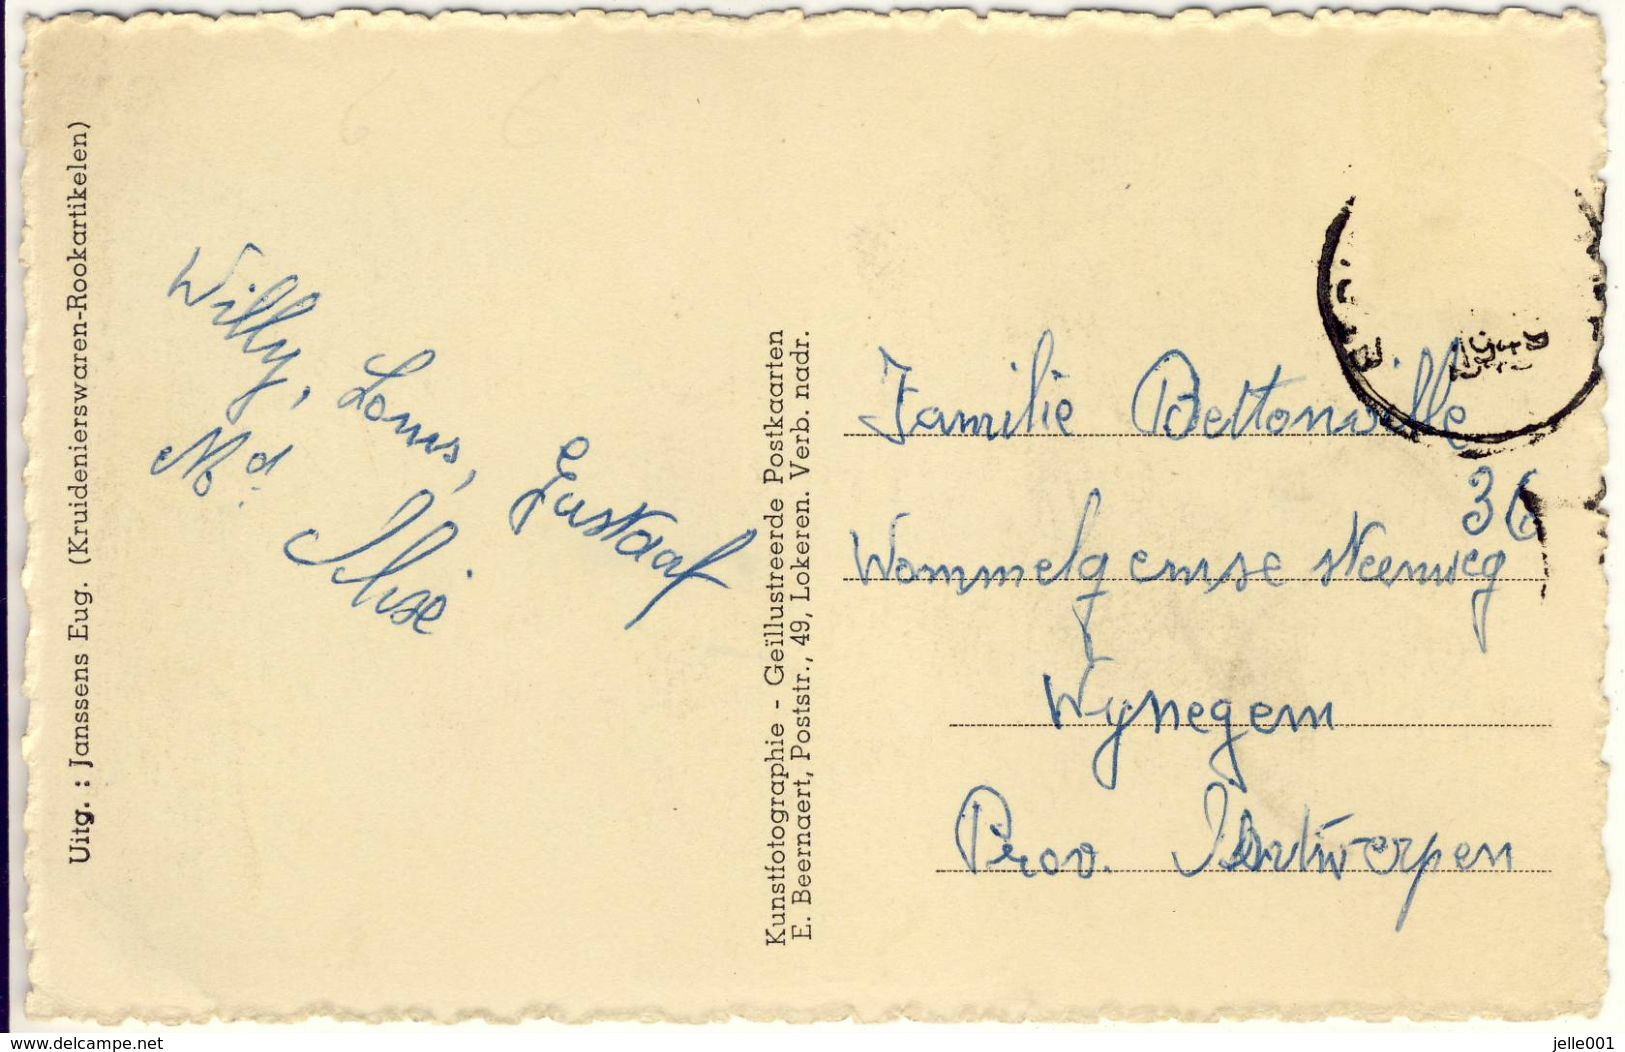 Uitg. : Janssens Eug. (Kruidenierswaren-Rookartikelen)
Willy, Louis, Gustaaf
Md.
Kunstfotographie - Geïllustreerde Postkaarten
E. Beernaert, Poststr., 49, Lokeren. Verb. nadr.
Familie Bettonville
36
Wommelgemse steenweg
Wynegem
Prov. Antwerpen
www.delcampe.net
jelle001